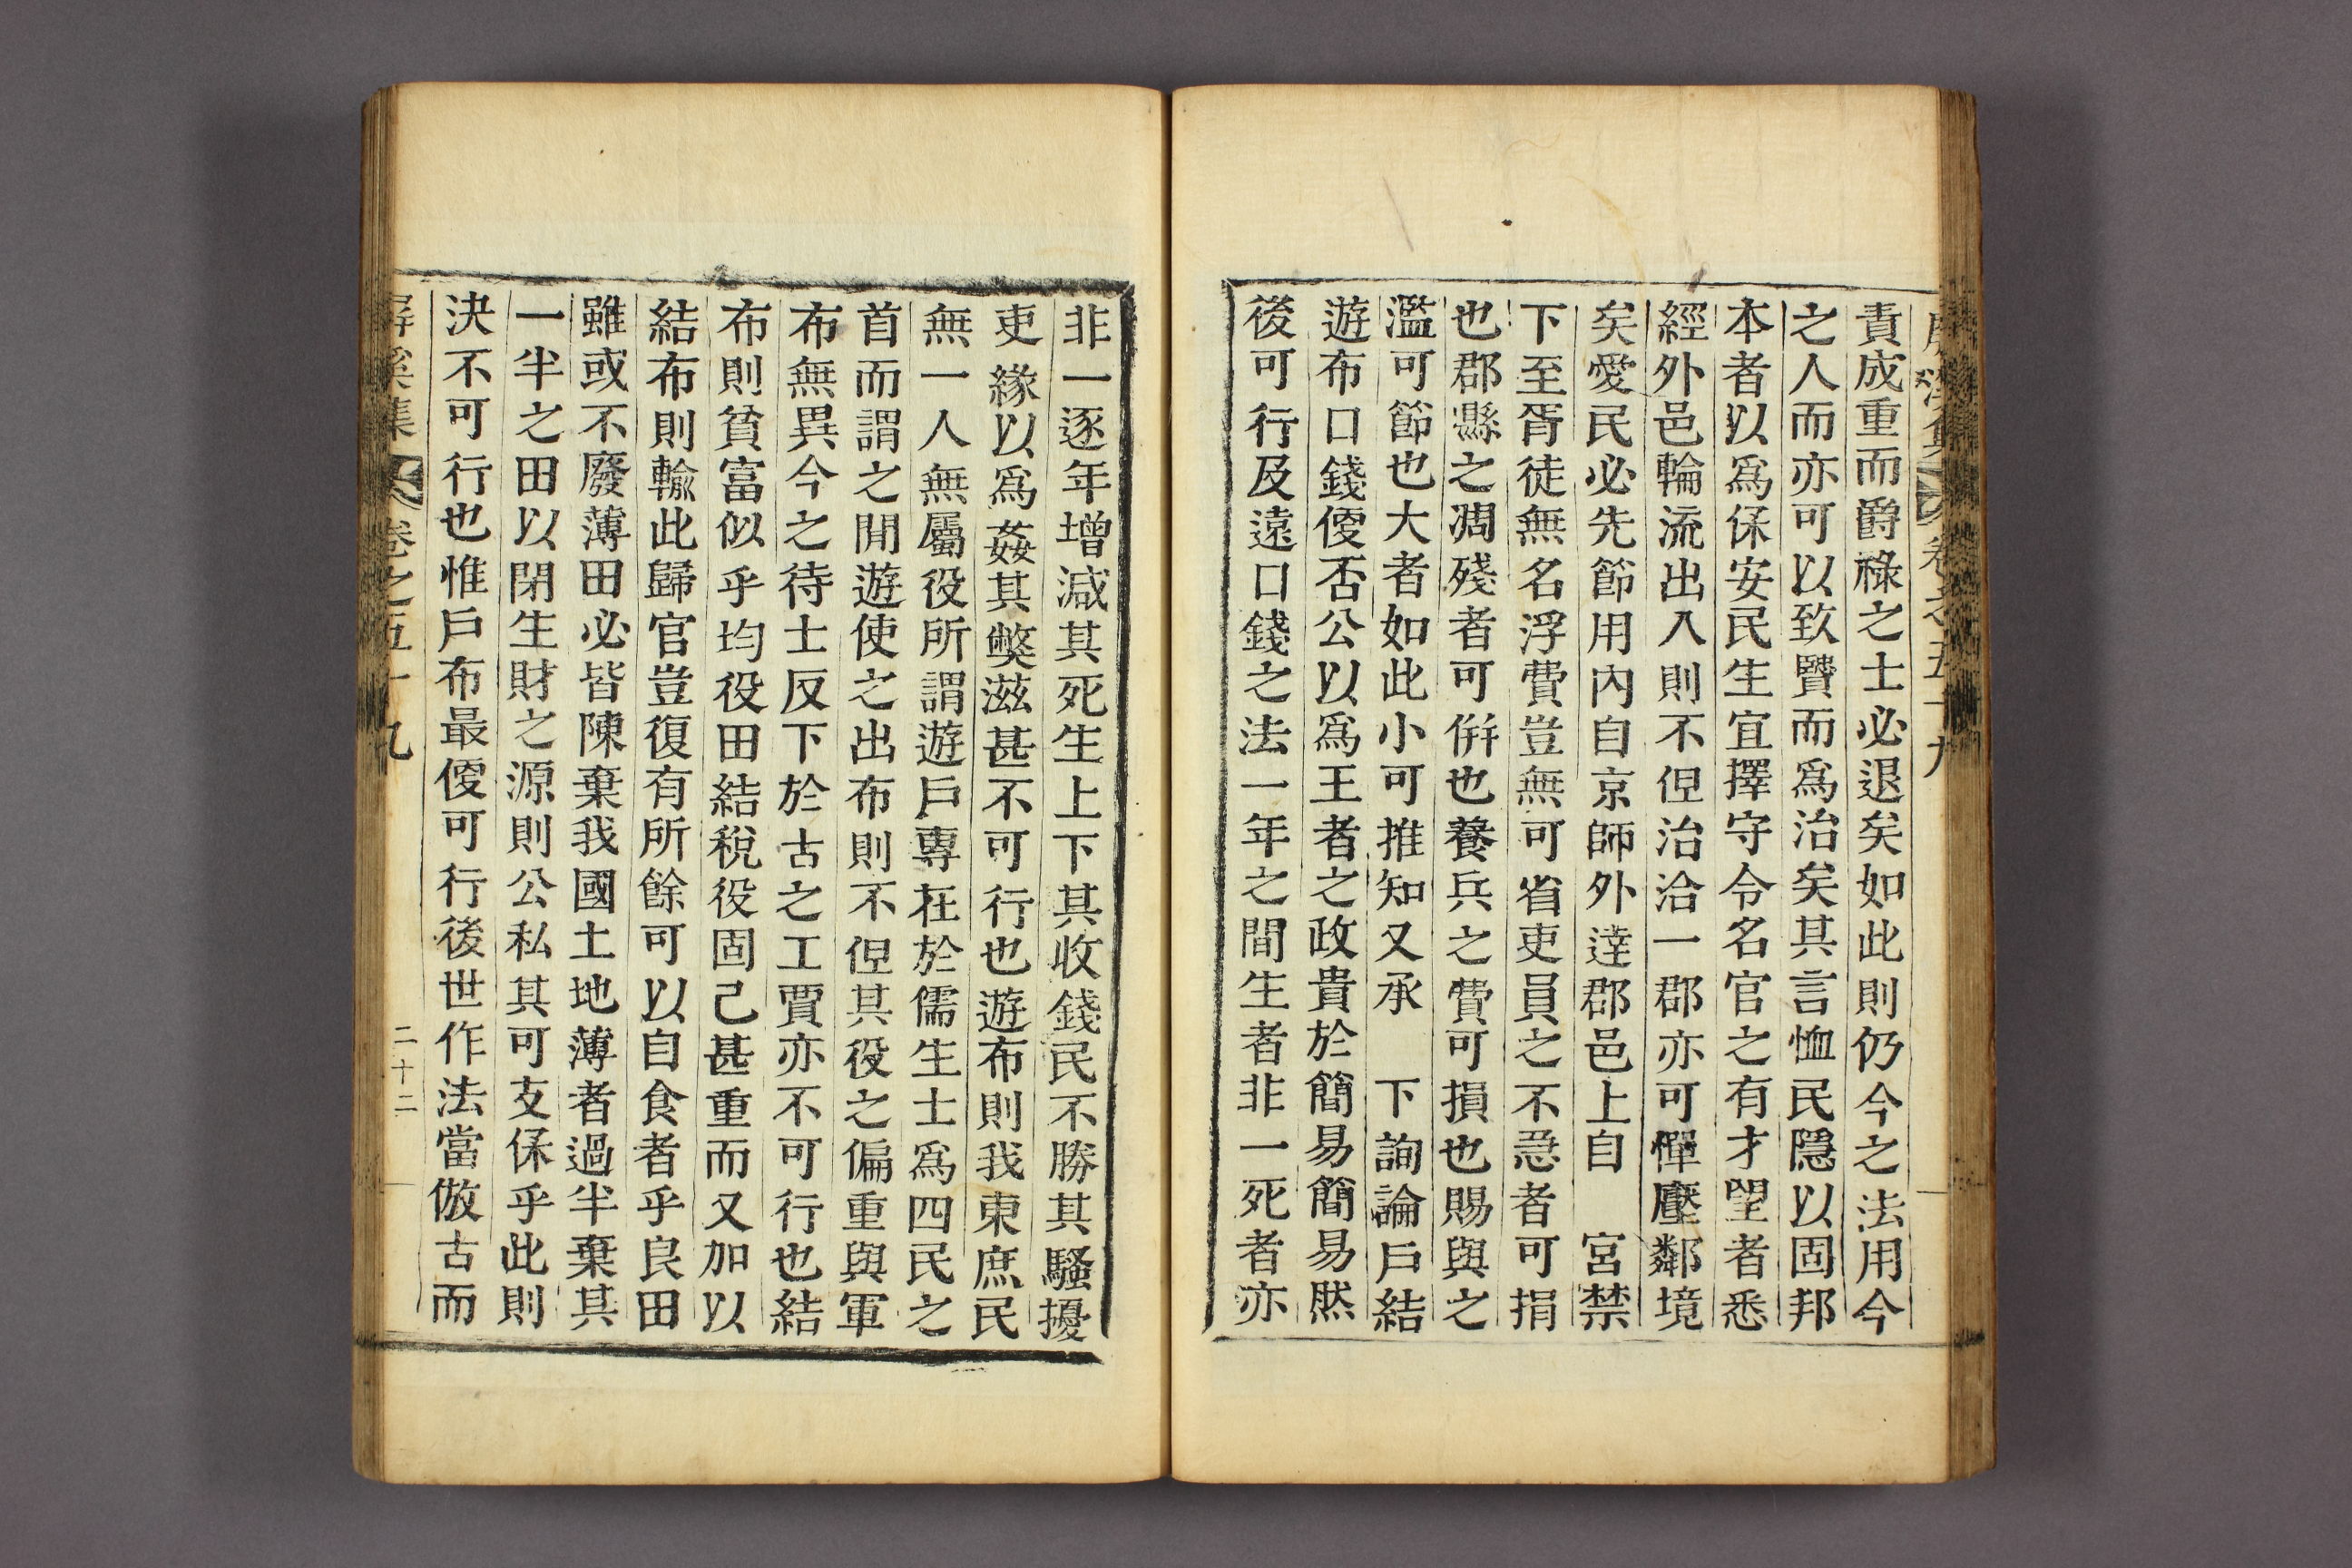 屏溪集 卷之五十九
責成重而爵祿之士必退矣如此則仍今之法用今
之人而亦可以致賢而爲治矣其言恤民隱以固邦
本者以爲保安民生宜擇守令名官之有才望者悉
經外邑輪流出入則不但治洽一郡亦可憚壓鄰境
矣愛民必先節用內自京師外達郡邑上自 宮禁
下至胥徒無名浮費豈無可省吏員之不急者可捐
也郡縣之凋殘者可併也養兵之費可損也賜與之
濫可節也大者如此小可推知又承 下詢論戶結
遊布口錢便否公以爲王者之政貴於簡易簡易然
後可行及遠口錢之法一年之間生者非一死者亦
非一逐年增減其死生上下其收錢民不勝其騷擾
吏緣以爲姦其弊滋甚不可行也遊布則我東庶民
無一人無屬役所謂遊戶專在於儒生士爲四民之
首而謂之閒遊使之出布則不但其役之偏重與軍
布無異今之待士反下於古之工賈亦不可行也結
布則貧富似乎均役田結稅役固已甚重而又加以
結布則輸此歸官豈復有所餘可以自食者乎良田
雖或不廢薄田必皆陳棄我國土地薄者過半棄其
一半之田以閉生財之源則公私其可支保乎此則
決不可行也惟戶布最便可行後世作法當倣古而
屛溪集 卷之五十九 二十二